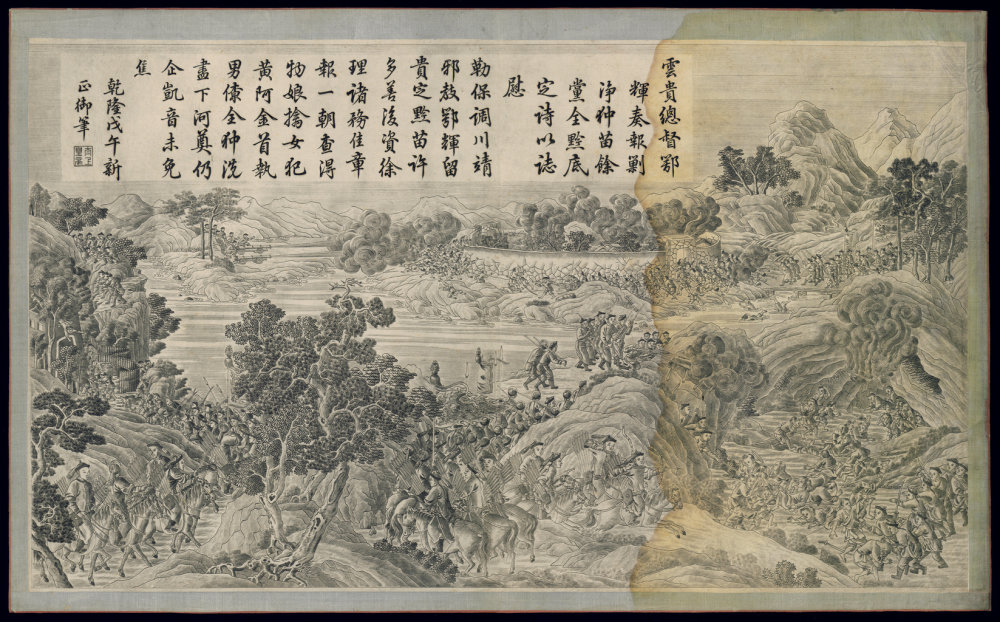 雲貴總督鄂
輝奏報剿
淨狆苗餘
黨全黔底
定詩以誌
慰
勒保調川靖
邪敎鄂輝留
貴定黔苗許
多善後資徐
理諸務佳章
報一朝查得
物娘擒女犯
黄阿金首執
男全狆洗
盡下河奠仍
企凱音未免
焦
乾隆戊午新
正御筆